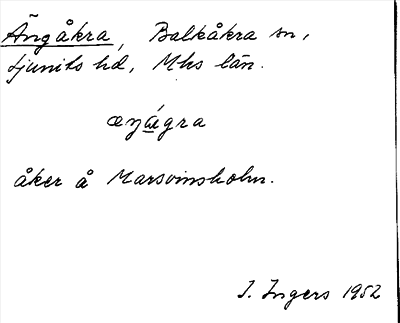 Ängåkra, Balkåkra sn,
Ljunits hd, Mhs län.
æŋågra
åker å Marsvinsholm.
I. Ingers 1952